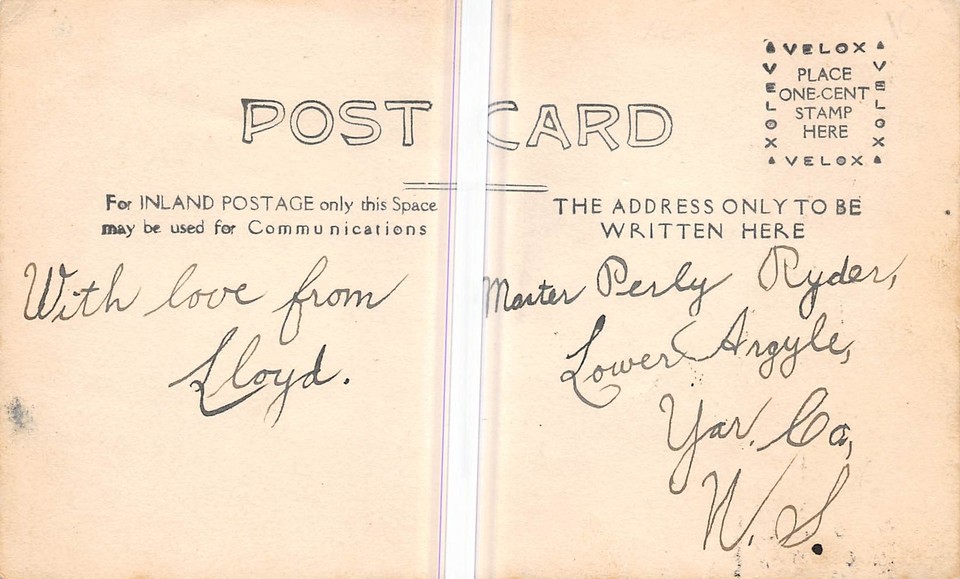 POST CARD
VELOX
VELOX
VELOX
VELOX
PLACE
ONE-CENT
STAMP
HERE
For INLAND POSTAGE only this Space
may be used for Communications
THE ADDRESS ONLY TO BE
WRITTEN HERE
With love from
Lloyd.
Master Perly Ryder,
Lower Argyle,
Yar. Co,
N. S.